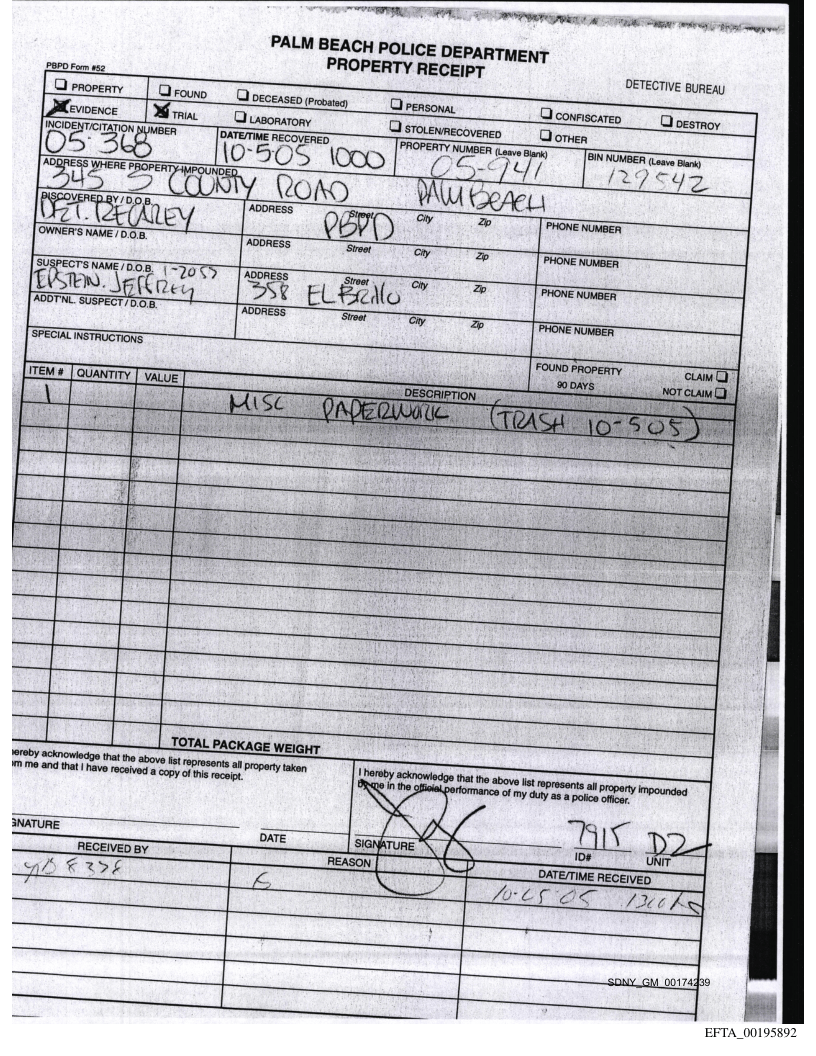 PALM BEACH POLICE DEPARTMENT
PROPERTY RECEIPT
PBPD Form #52
DETECTIVE BUREAU
PROPERTY FOUND DECEASED (Probated) PERSONAL CONFISCATED DESTROY
EVIDENCE TRIAL LABORATORY STOLEN/RECOVERED OTHER
INCIDENT/CITATION NUMBER DATE/TIME RECOVERED PROPERTY NUMBER (Leave Blank) BIN NUMBER (Leave Blank)
05-368 10-5-05 1000 05-941 129542
ADDRESS WHERE PROPERTY IMPOUNDED
345 S COUNTY ROAD PALM BEACH
DISCOVERED BY / D.O.B. ADDRESS Street City Zip PHONE NUMBER
DET. RECAREY PBPD
OWNER'S NAME / D.O.B. ADDRESS Street City Zip PHONE NUMBER
SUSPECT'S NAME / D.O.B. ADDRESS Street City Zip PHONE NUMBER
EPSTEIN. JEFFREY 358 EL BRILLO
ADDT'NL. SUSPECT / D.O.B. ADDRESS Street City Zip PHONE NUMBER
SPECIAL INSTRUCTIONS
FOUND PROPERTY CLAIM
90 DAYS NOT CLAIM
ITEM # QUANTITY VALUE DESCRIPTION
1 MISC PAPERWORK (TRASH 10-505)
TOTAL PACKAGE WEIGHT
ereby acknowledge that the above list represents all property taken
om me and that I have received a copy of this receipt.
I hereby acknowledge that the above list represents all property impounded
by me in the official performance of my duty as a police officer.
7915 D2
GNATURE DATE SIGNATURE ID# UNIT
RECEIVED BY REASON DATE/TIME RECEIVED
8378
SDNY_GM_00174239
EFTA_00195892